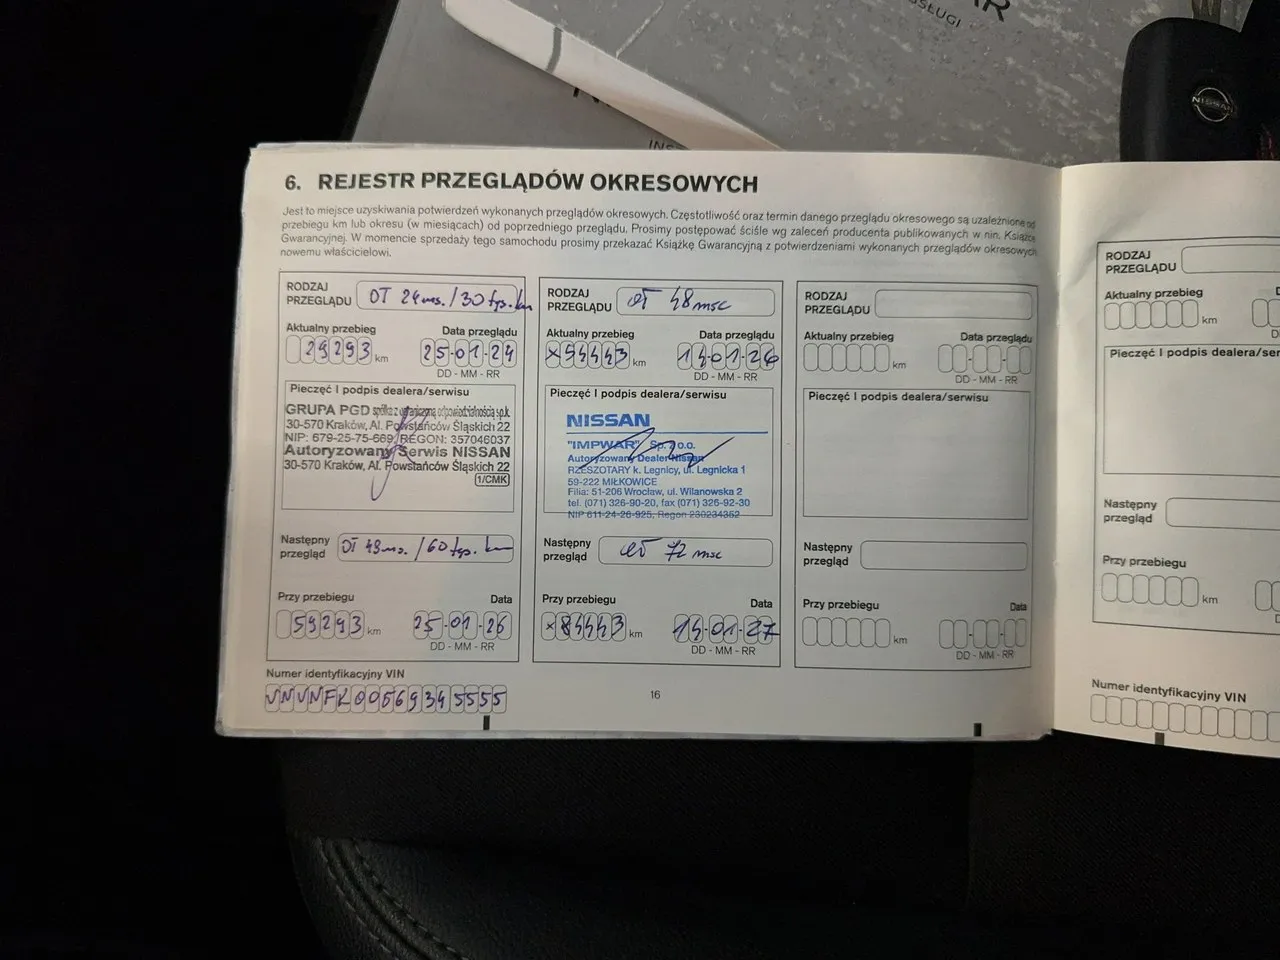 6. REJESTR PRZEGLĄDÓW OKRESOWYCH
Jest to miejsce uzyskiwania potwierdzeń wykonanych przeglądów okresowych. Częstotliwość oraz termin danego przeglądu okresowego są uzależnione od
przebiegu km lub okresu (w miesiącach) od poprzedniego przeglądu. Prosimy postępować ściśle wg zaleceń producenta publikowanych w nin. Książce
Gwarancyjnej. W momencie sprzedaży tego samochodu prosimy przekazać Książkę Gwarancyjną z potwierdzeniami wykonanych przeglądów okresowych
nowemu właścicielowi.
RODZAJ
PRZEGLĄDU OT 24 ms. / 30 tys. km
Aktualny przebieg Data przeglądu
29293 km 25-01-24
DD - MM - RR
Pieczęć I podpis dealera/serwisu
GRUPA PGD spółka z ograniczoną odpowiedzialnością sp.k.
30-570 Kraków, Al. Powstańców Śląskich 22
NIP: 679-25-75-669, REGON: 357046037
Autoryzowany Serwis NISSAN
30-570 Kraków, Al. Powstańców Śląskich 22
1/CMK
Następny
przegląd OT 48 ms. / 60 tys. km
Przy przebiegu Data
59293 km 25-01-26
DD - MM - RR
Numer identyfikacyjny VIN
RODZAJ
PRZEGLĄDU OT 48 msc
Aktualny przebieg Data przeglądu
x54443 km 14-01-26
DD - MM - RR
Pieczęć I podpis dealera/serwisu
NISSAN
"IMPWAR" Sp. z o.o.
Autoryzowany Dealer Nissan
RZESZOTARY k. Legnicy, ul. Legnicka 1
59-222 MIŁKOWICE
Filia: 51-206 Wrocław, ul. Wilanowska 2
tel. (071) 326-90-20, fax (071) 326-92-30
NIP 611-24-26-925, Regon 230234352
Następny
przegląd OT 72 msc
Przy przebiegu Data
x84443 km 14-01-27
DD - MM - RR
16
RODZAJ
PRZEGLĄDU
Aktualny przebieg Data przeglądu
km
DD - MM - RR
Pieczęć I podpis dealera/serwisu
Następny
przegląd
Przy przebiegu Data
km
DD - MM - RR
RODZAJ
PRZEGLĄDU
Aktualny przebieg
km
Pieczęć I podpis dealera/ser
Następny
przegląd
Przy przebiegu
km
Numer identyfikacyjny VIN
NISSAN